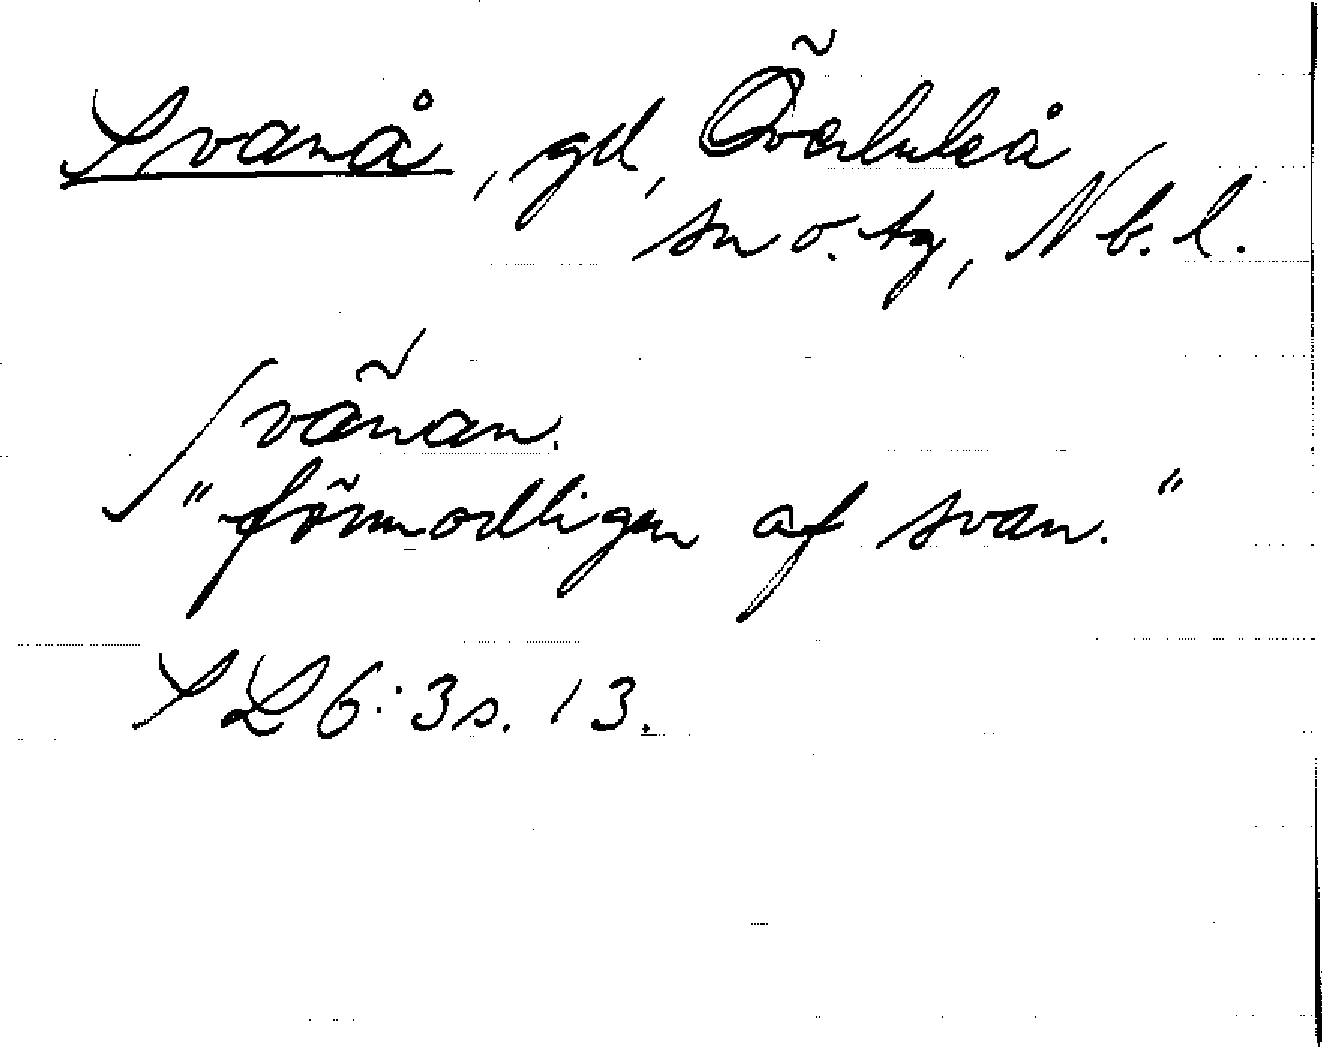 Svanå, gd, Överluleå
sn o. tg, Nb. l.
svänan.
"förmodligen af svan."
SL 6:3 s. 13.